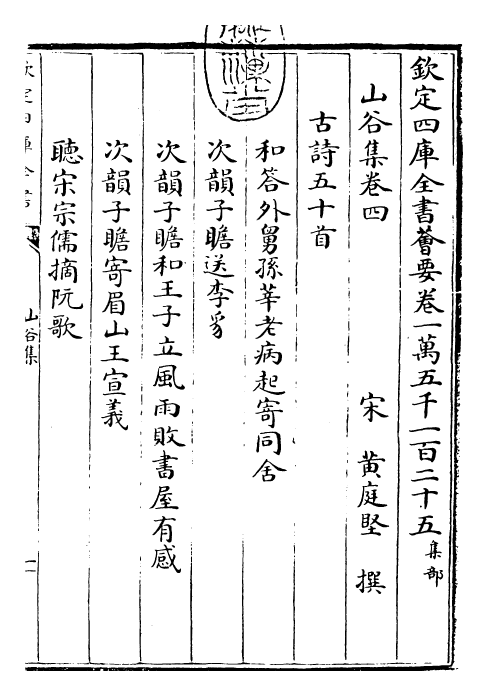 欽定四庫全書薈要卷一萬五千一百二十五集部
山谷集卷四
宋 黃庭堅 撰
古詩五十首
和答外舅孫莘老病起寄同舍
次韻子瞻送李豸
次韻子瞻和王子立風雨敗書屋有感
次韻子瞻寄眉山王宣義
聽宋宗儒摘阮歌
欽定四庫全書
山谷集
一